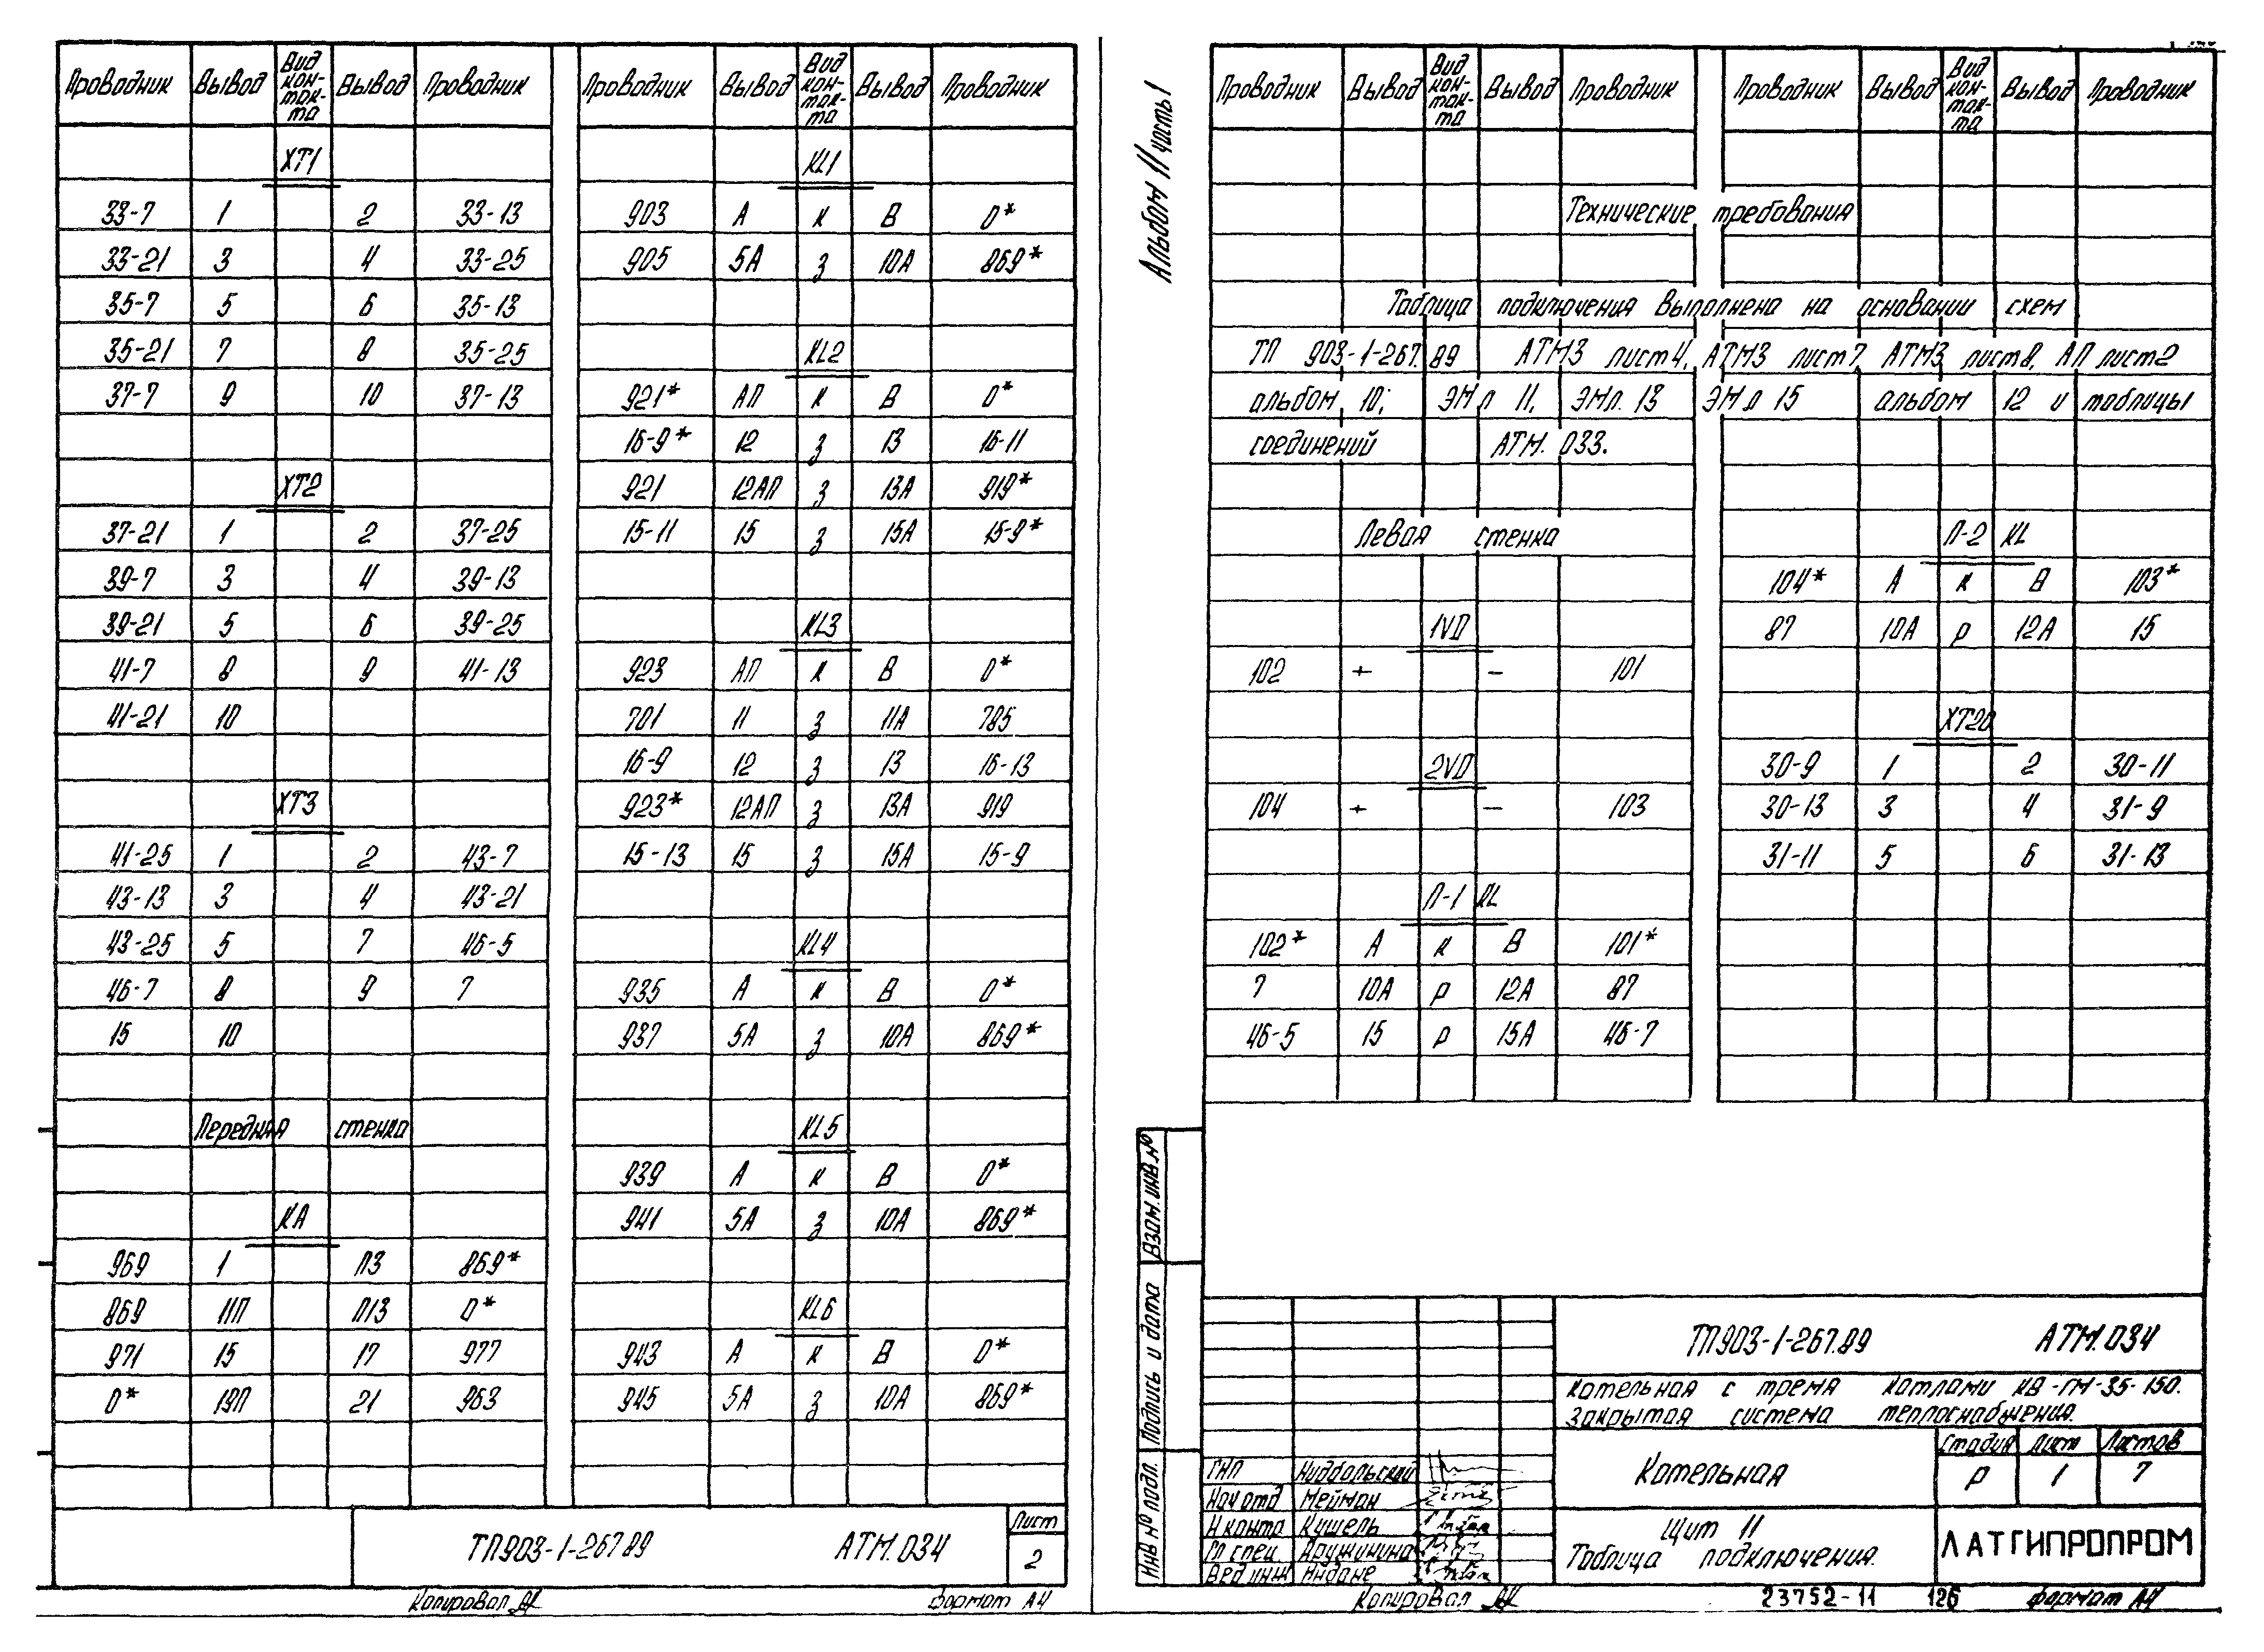 Проводник Вывод Вид кон-так-та Вывод Проводник
ХТ1
33-7 1 2 33-13
33-21 3 4 33-25
35-7 5 6 35-13
35-21 7 8 35-25
37-7 9 10 37-13
ХТ2
37-21 1 2 37-25
39-7 3 4 39-13
39-21 5 6 39-25
41-7 8 9 41-13
41-21 10
ХТ3
41-25 1 2 43-7
43-13 3 4 43-21
43-25 5 7 46-5
46-7 8 9 7
15 10
Передняя стенка
КА
969 1 П3 869*
869 11П П13 0*
971 15 17 977
0* 19П 21 963
Проводник Вывод Вид кон-так-та Вывод Проводник
KL1
903 А к В 0*
905 5А з 10А 869*
KL2
921* АП к В 0*
16-9* 12 з 13 16-11
921 12АП з 13А 919*
15-11 15 з 15А 15-9*
KL3
923 АП к В 0*
701 11 з 11А 785
16-9 12 з 13 16-13
923* 12АП з 13А 919
15-13 15 з 15А 15-9
KL4
935 А к В 0*
937 5А з 10А 869*
KL5
939 А к В 0*
941 5А з 10А 869*
KL6
943 А к В 0*
945 5А з 10А 869*
ТП903-1-267.89 АТМ.034
Лист
2
Копировал
формат А4
Альбом 11 часть 1
Проводник Вывод Вид кон-так-та Вывод Проводник
Проводник Вывод Вид кон-так-та Вывод Проводник
Технические требования
Таблица подключения выполнена на основании схем
ТП 903-1-267.89 АТМ3 лист4, АТМ3 лист7, АТМ3 лист8, АП лист2
альбом 10; ЭМл 11, ЭМл. 13 ЭМл 15 альбом 12 и таблицы
соединений АТМ. 033.
Левая стенка
1VD
102 + - 101
2VD
104 + - 103
П-1 KL
102* А к В 101*
7 10А р 12А 87
46-5 15 р 15А 46-7
П-2 KL
104* А к В 103*
87 10А р 12А 15
ХТ20
30-9 1 2 30-11
30-13 3 4 31-9
31-11 5 6 31-13
Взам. инв. №
Подпись и дата
Инв № подл.
ТП903-1-267.89 АТМ.034
Котельная с тремя котлами КВ-ГМ-35-150.
Закрытая система теплоснабжения.
ГИП
Нач отд Мейман
Н контр Кушель
Гл спец Дружинина
Вед инж Индане
Котельная
Стадия Лист Листов
Р 1 7
Щит 11
Таблица подключения.
ЛАТГИПРОПРОМ
Копировал
23752-11 126
формат А4